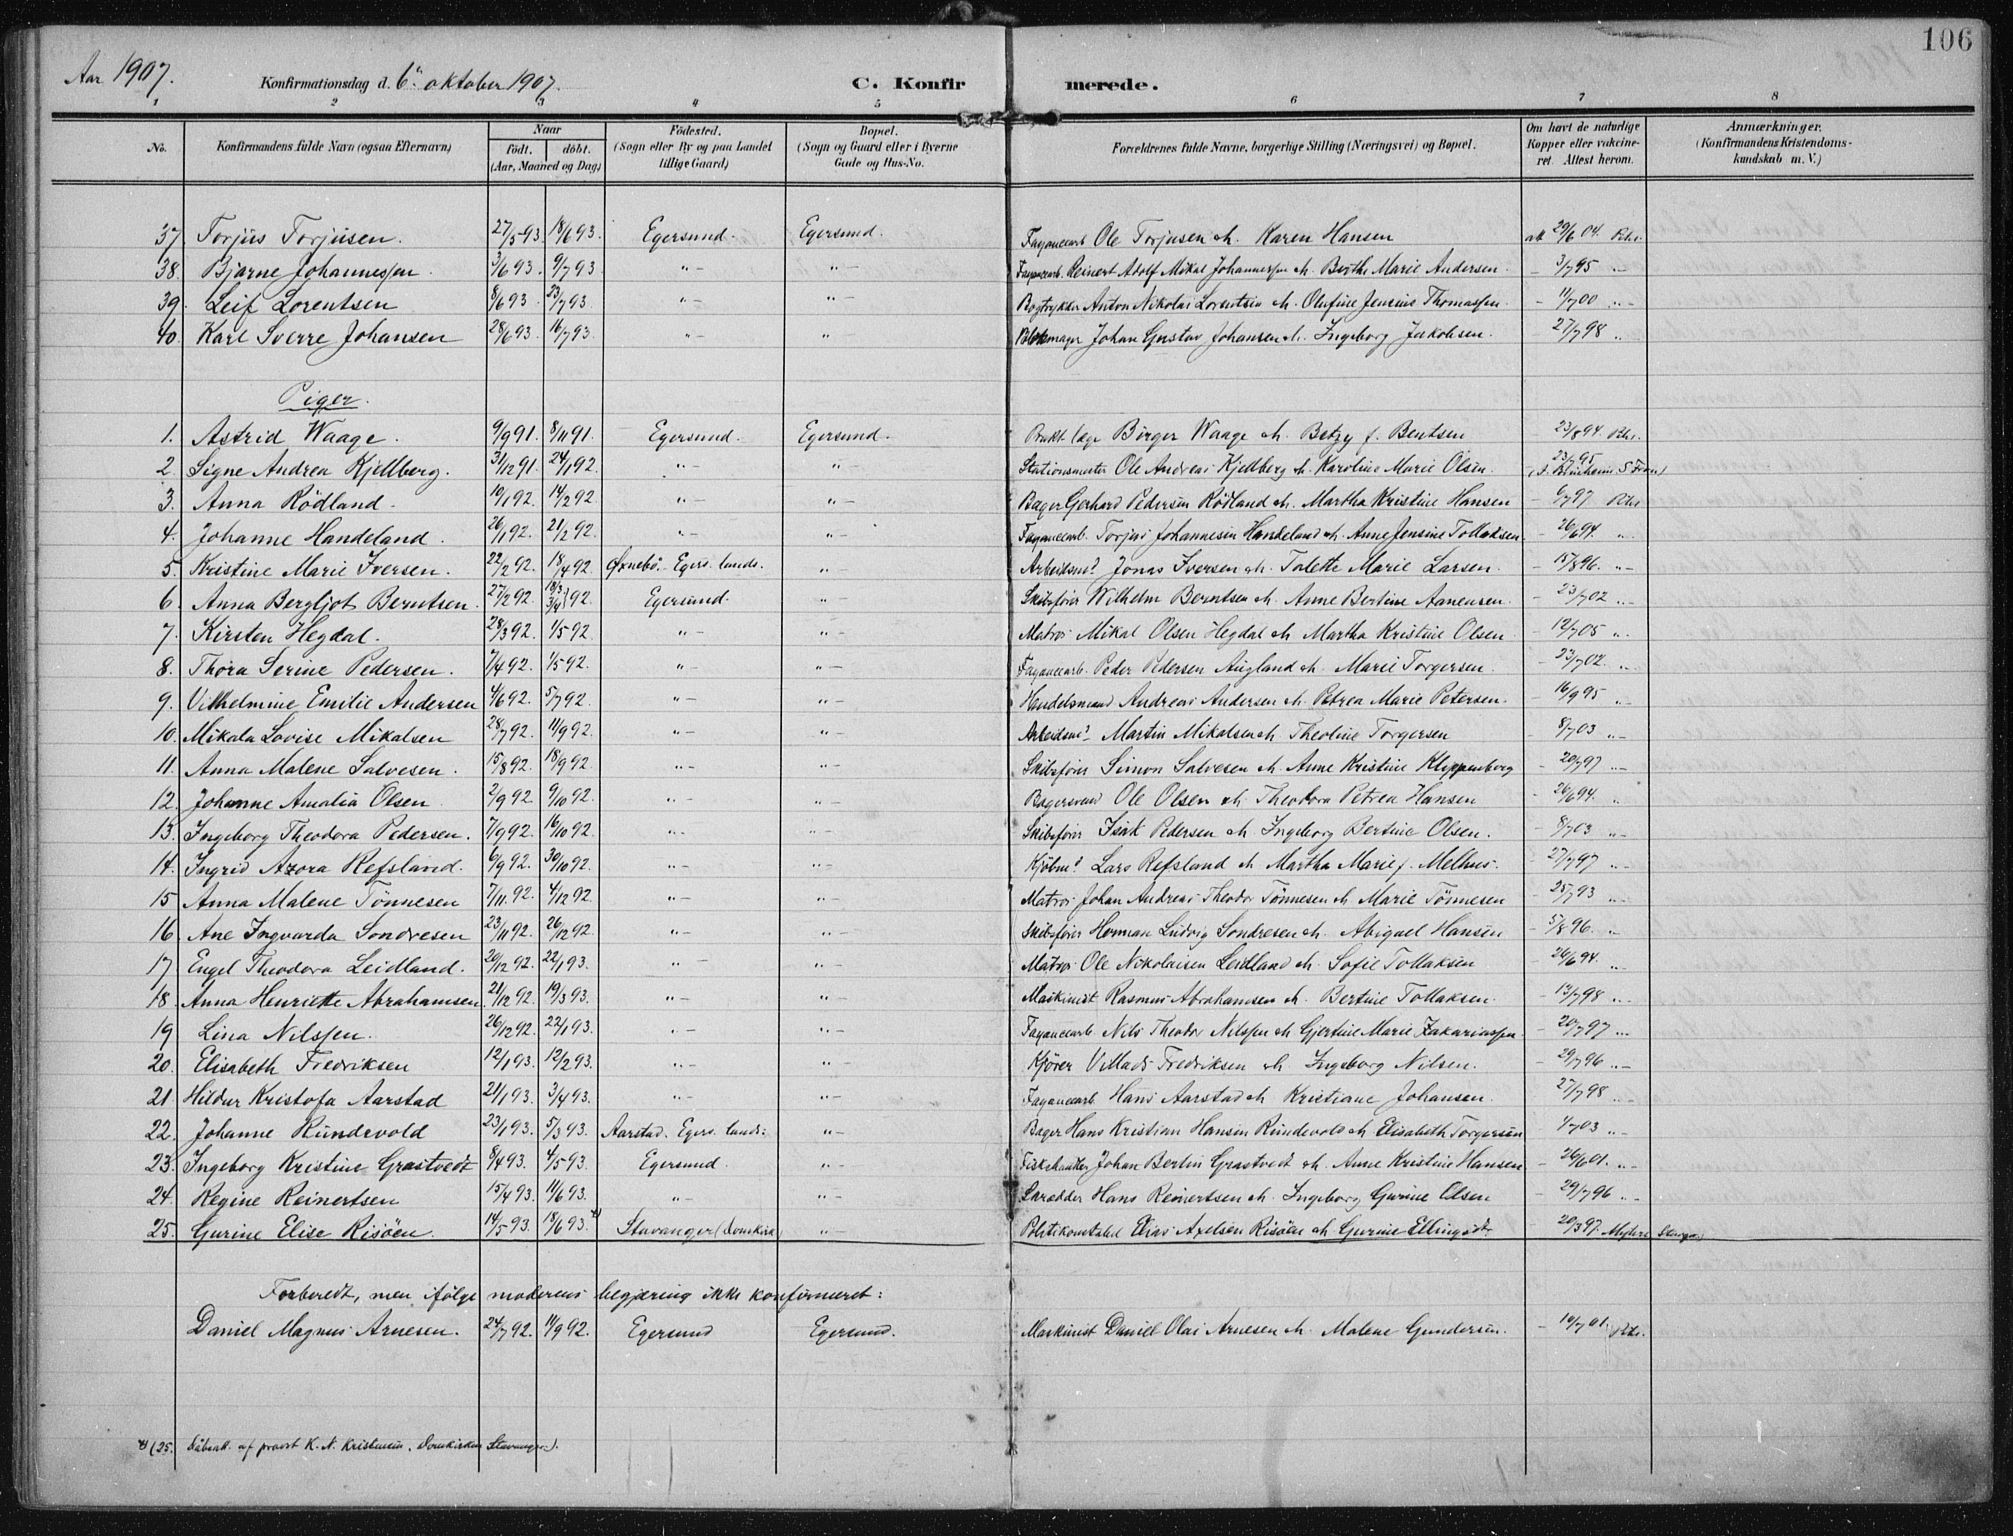 106
Aar 1907. Konfirmationsdag d. 6te oktober 1907. C. Konfirmerede.
1 2 3 4 5 6 7 8
No. Konfirmandens fulde Navn (ogsaa Efternavn) Naar Födt. döbt. (Aar, Maaned og Dag) Födested. (Sogn eller By og paa Landet tillige Gaard) Bopæl. (Sogn og Gaard eller i Byerne Gade og Hus-No. Forældrenes fulde Navne, borgerlige Stilling (Næringsvei) og Bopæl. Om havt de naturlige Kopper eller vakcineret. Attest herom. Anmærkninger. (Konfirmandens Kristendomskundskab m. V.)
37. Torjus Torjusen. 27/5 93. 18/6 93. Egersund. Egersund. Fayancearb. Ole Torjusen og h. Karen Hansen att 29/6 04. Rchs.
38. Bjarne Johannessen. 3/6 93. 9/7 93. "- "- Fayancearb. Reinert Adolf Mikal Johannessen og h. Berthe Marie Andersen. - 3/7 95 "-
39. Leif Lorentsen 8/6 93. 23/7 93. "- "- Bogtrykker Anton Nikolai Lorentsen og h. Olufine Jensine Thomassen. - 11/7 00 "-
40. Karl Sverre Johansen 28/6 93. 16/7 93. "- " Blokmager Johan Gustav Johansen og h. Ingeborg Jakobsen. - 27/7 98 "
Piger.
1. Astrid Waage. 9/9 91. 8/11 91. Egersund. Egersund. Prakt. læge Birger Waage og h. Betzy f. Bentsen - 23/8 94. Rchs.
2. Signe Andrea Kjellberg. 31/12 91. 24/1 92. "- "- Stationsmester Ole Andreas Kjellberg og h. Karoline Marie Olsen. 23/7 95
3. Anna Rödland. 10/1 92. 14/2 92. "- "- Bager Gerhard Pedersen Rödland og h. Martha Kristine Hansen - 6/7 97 Rchs
4. Johanne Handeland. 26/1 92. 21/2 92. "- "- Fayancearb. Torjus Johannesen Handeland og h. Anne Jensine Tollaksen. - 26/6 94. "
5. Kristine Marie Iversen. 22/2 92. 18/4 92. Øxnebö. Egers. lands. "- Arbeidsmd. Jonas Iversen og h. Talette Marie Larsen. - 15/8 96. "-
6. Anna Bergljot Berntsen. 27/2 92. 18/3 3/4 92. Egersund. "- Skibsfører Wilhelm Berntsen og h. Anne Bertine Aanensen. - 23/7 02 "-
7. Kirsten Hegdal. 28/3 92. 1/5 92. "- "- Matros Mikal Olsen Hegdal og h. Martha Kristine Olsen. - 12/7 05 "
8. Thora Serine Pedersen. 7/4 92. 1/5 92. "- "- Fayancearb. Peder Pedersen Augland og h. Marie Torgersen. - 23/7 02. "-
9. Vilhelmine Emilie Andersen 4/6 92. 5/7 92. "- "- Handelsmand Andreas Andersen og h. Petrea Marie Petersen. - 16/9 95 "
10. Mikala Lovise Mikalsen 28/7 92. 11/9 92. "- "- Arbeidsmd. Martin Mikalsen og h. Theoline Torgersen - 8/7 03 "-
11. Anna Malene Salvesen. 15/8 92. 18/9 92. "- "- Skibsfører Simon Salvesen og h. Anne Kristine Kleppenborg - 20/7 97 "-
12. Johanne Amalia Olsen. 2/9 92. 9/10 92. "- "- Bagersvend Ole Olsen og h. Theodora Petrea Hansen - 26/6 94. "
13. Ingeborg Theodora Pedersen. 7/9 92. 16/10 92. "- "- Skibsfører Isak Pedersen og h. Ingeborg Bertine Olsen. - 8/7 03 "-
14. Ingrid Azora Refsland. 6/9 92. 30/10 92. "- "- Kjøbmd. Lars Refsland og h. Martha Marie f. Melhus. - 27/7 97 "-
15 Anna Malene Tönnesen 7/11 92. 4/12 92. "- "- Matros Johan Andreas Theodor Tönnesen og h. Marie Tönnesen - 25/7 93 "-
16. Ane Ingvarda Sondresen 23/11 92. 26/12 92. "- "- Skibsfører Herman Ludvig Sondresen og h. Abigael Hansen - 5/8 96. "
17. Engel Theodora Leidland. 20/12 92. 22/1 93. "- "- Matros Ole Nikolaisen Leidland og h. Sofie Tollaksen - 26/6 94. "-
18. Anna Henriette Abrahamsen. 21/12 92. 19/3 93. "- "- Maskinist Rasmus Abrahamsen og h. Bertine Tollaksen. - 13/7 98 "-
19. Lina Nilssen. 26/12 92. 22/1 93. "- "- Fayancearb. Nils Theodor Nilssen og h. Gjertine Marie Zakariassen. - 20/7 97 "-
20. Elisabeth Fredriksen 12/1 93. 12/2 93. "- "- Kjører Villads Fredriksen og h. Ingeborg Nilsen. - 29/7 96 "-
21. Hildur Kristofa Aarstad 21/1 93. 3/4 93. "- "- Fayancearb. Hans Aarstad og h. Kristiane Johansen. - 27/7 98 "-
22. Johanne Rundevold 23/1 93. 5/3 93. Aarstad. Egers. lands: "- Bager Hans Kristian Hansen Rundevold og h. Elisabeth Torgersen - 4/7 03 "-
23. Ingeborg Kristine Grastvedt 8/4 93. 4/5 93. Egersund. "- Fiskehandler Johan Bertin Grastvedt og h. Anne Kristine Hansen - 26/6 01. "-
24. Regine Reinertsen 15/4 93. 11/6 93. "- "- Skrædder Hans Reinertsen og h. Ingeborg Gurine Olsen - 29/7 96 "-
25. Gurine Elise Risöen. 14/5 93. 18/6 93. x) Stavanger (Domkirk.) "- Politikonstabel Elias Axelsen Risöen og h. Gurine Ellingsdt. - 20/3 97.
Forberedt, men ifölge moderens begjæring ikke konfirmeret:
Daniel Magnus Arnesen. 24/7 92. 11/9 92. Egersund Egersund. Maskinist Daniel Olai Arnesen og h. Malene Gundersen. - 10/7 01. Rchs.
x) (25. Dåbsatt. af provst K. N. Kristensen, Domkirken Stavanger.).